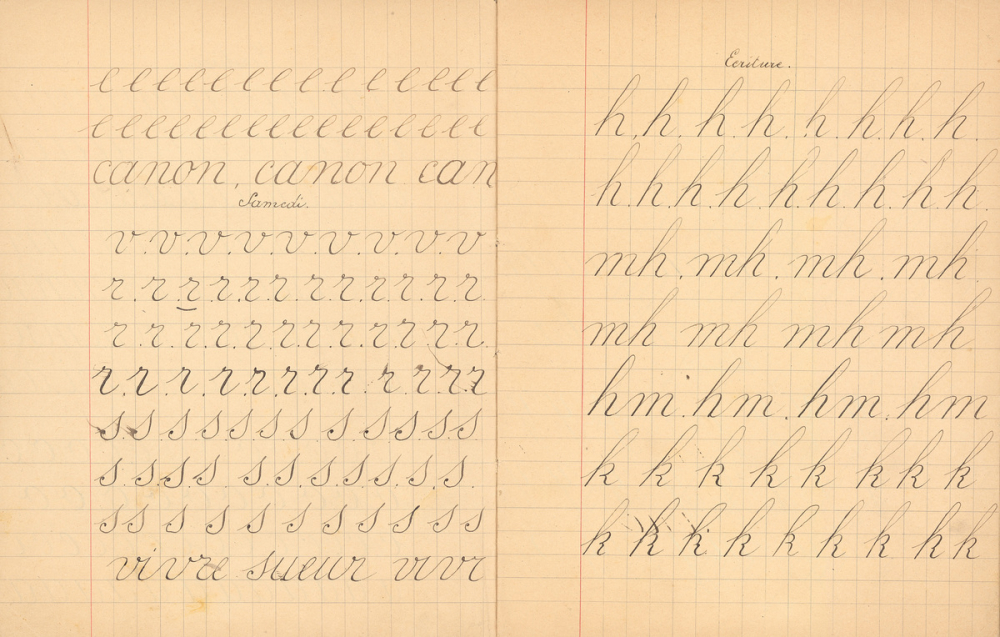 e e e e e e e e e e e e e e e
e e e e e e e e e e e e e e e e
canon, canon can
Samedi.
v.v.v.v v v.v.v.v
r.r.r.r.r.r.r.r.r.r.r.r.
r.r.r.r.r.r.r.r.r.r.r.r.
r.r.r.r.r.r.r.r.r.r.r.r
s.s s s s s s s s s s s
s.s s s s s s.s.s.s.s.
s s s s s s s s s s s
vivre sueur vivr
Ecriture.
h.h.h.h.h.h.h.h.
h.h.h.h.h.h.h.h.h.
mh.mh.mh.mh
mh mh mh mh
hm.hm.hm.hm
k k k k k k k k
k k k k k k k k k